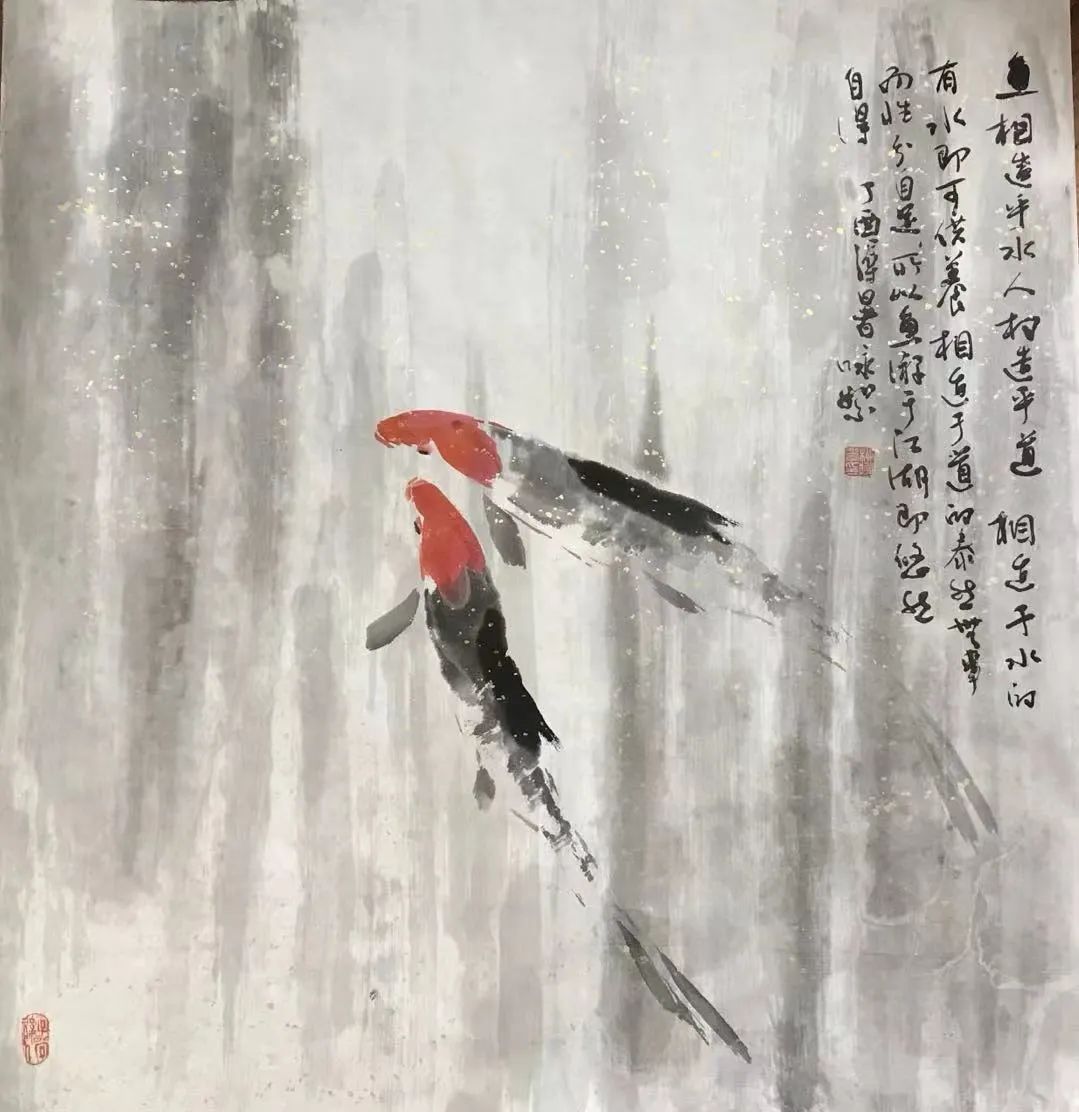 鱼相造乎水人相造乎道 相造于水的
有水即可供养相造于道的泰然无事
而性分自足所以鱼游于江湖即悠然
自得 丁酉溽暑咏絮